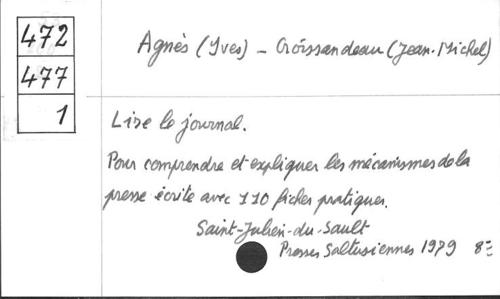 472
477
1
Agnès (Yves) - Croissandeau (Jean-Michel)
Lire le journal.
Pour comprendre et expliquer les mécanismes de la
presse écrite avec 110 fiches pratiques.
Saint-Julien-du-Sault
Presses Saltusiennes 1979 8º